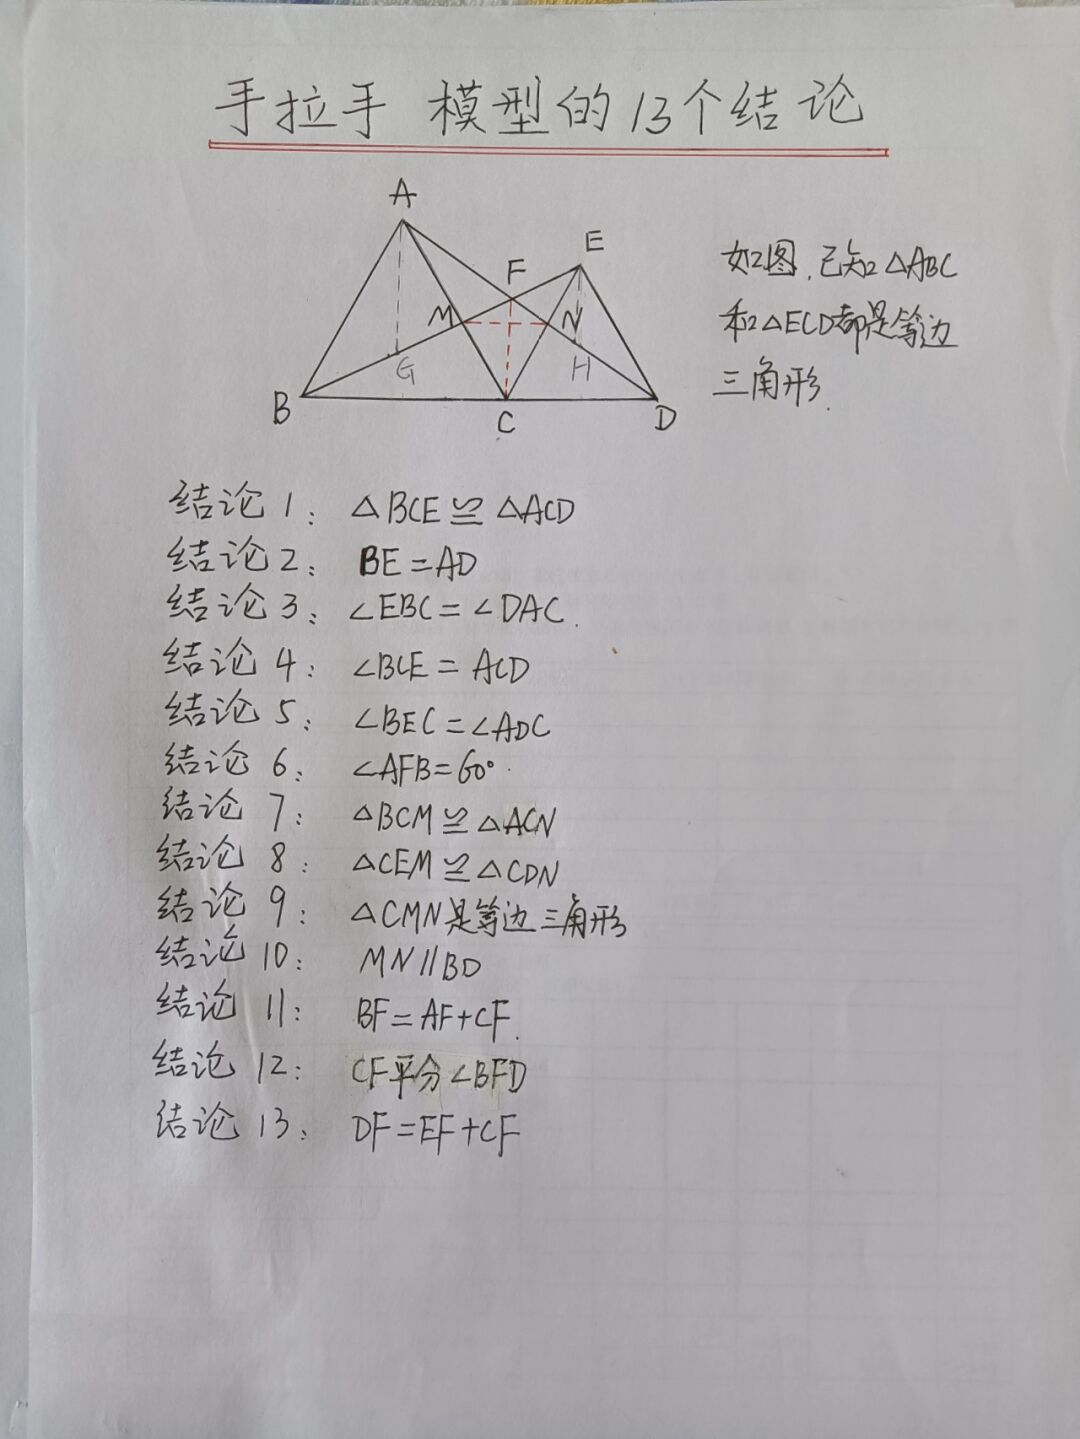 手拉手 模型的13个结论
A
E
F
M
N
G
H
B
C
D
如图,已知△ABC
和△ECD都是等边
三角形.
结论1: △BCE≌△ACD
结论2: BE=AD
结论3: ∠EBC=∠DAC.
结论4: ∠BCE=ACD
结论5: ∠BEC=∠ADC
结论6: ∠AFB=60°.
结论7: △BCM≌△ACN
结论8: △CEM≌△CDN
结论9: △CMN是等边三角形
结论10: MN∥BD
结论11: BF=AF+CF.
结论12: CF平分∠BFD
结论13: DF=EF+CF